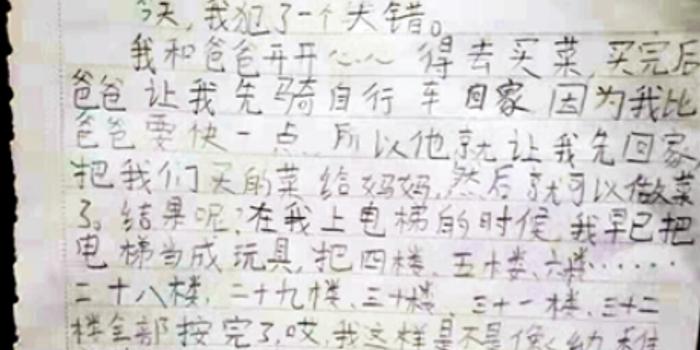 今天,我犯了一个大错。
我和爸爸开开心心得去买菜,买完后
爸爸让我先骑自行车回家因为我比
爸爸要快一点,所以他就让我先回家
把我们买的菜给妈妈,然后就可以做菜
了。结果呢?在我上电梯的时候,我早已把
电梯当成玩具,把四楼、五楼、六楼······
二十八楼、二十九楼、三十楼、三十一楼、三十二
楼全部按完了,哎,我这样是不是像幼稚